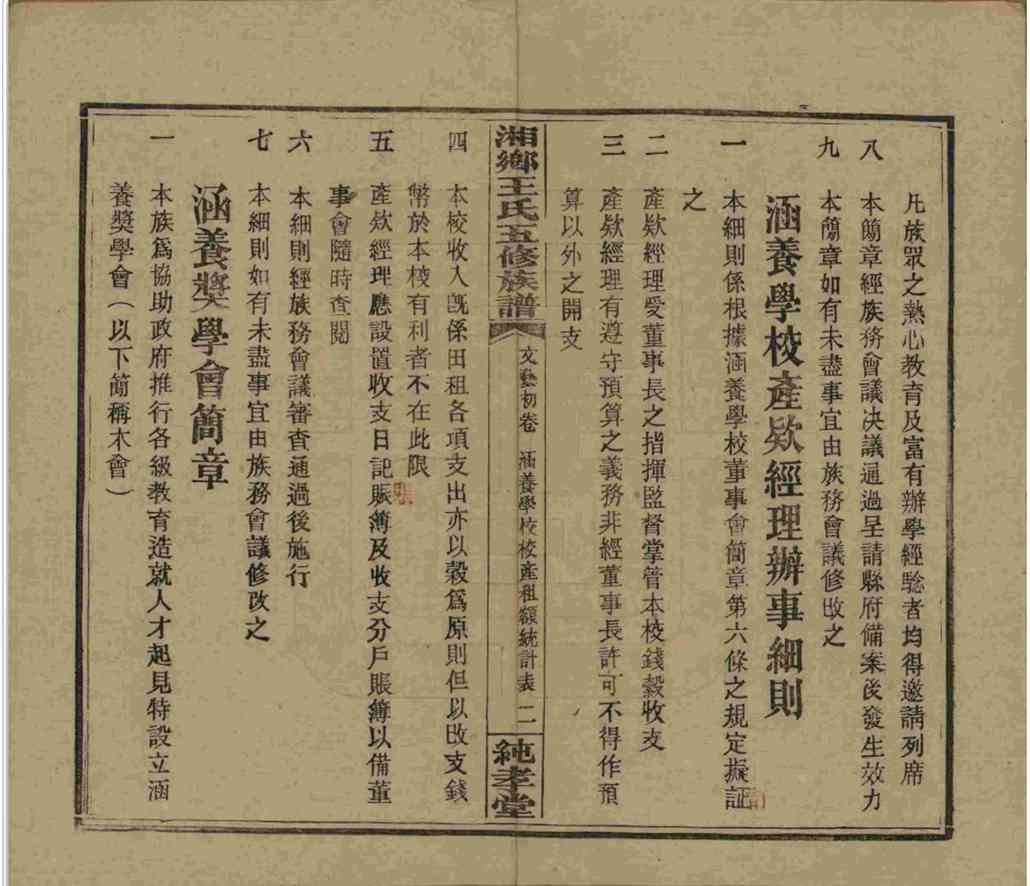 凡族眾之熱心教育及富有辦學經騐者均得邀請列席
八　本簡章經族務會議决議通過呈請縣府備案後發生效力
九　本簡章如有未盡事宜由族務會議修改之
涵養學校產欵經理辦事細則
一　本細則係根據涵養學校董事會簡章第六條之規定擬証
之
二　產欵經理受董事長之指揮監督掌管本校錢穀收支
三　產欵經理有遵守預算之義務非經董事長許可不得作預
算以外之開支
湘鄉王氏五修族譜　文藝初卷　涵養學校校產租額統計表　二　純孝堂
四　本校收入旣係田租各項支出亦以穀爲原則但以改支錢
幣於本校有利者不在此限
五　產欵經理應設置收支日記賬簿及收支分戶賬簿以備董
事會隨時查閱
六　本細則經族務會議審查通過後施行
七　本細則如有未盡事宜由族務會議修改之
涵養獎學會簡章
一　本族爲協助政府推行各級教育造就人才起見特設立涵
養獎學會（以下簡稱木會）